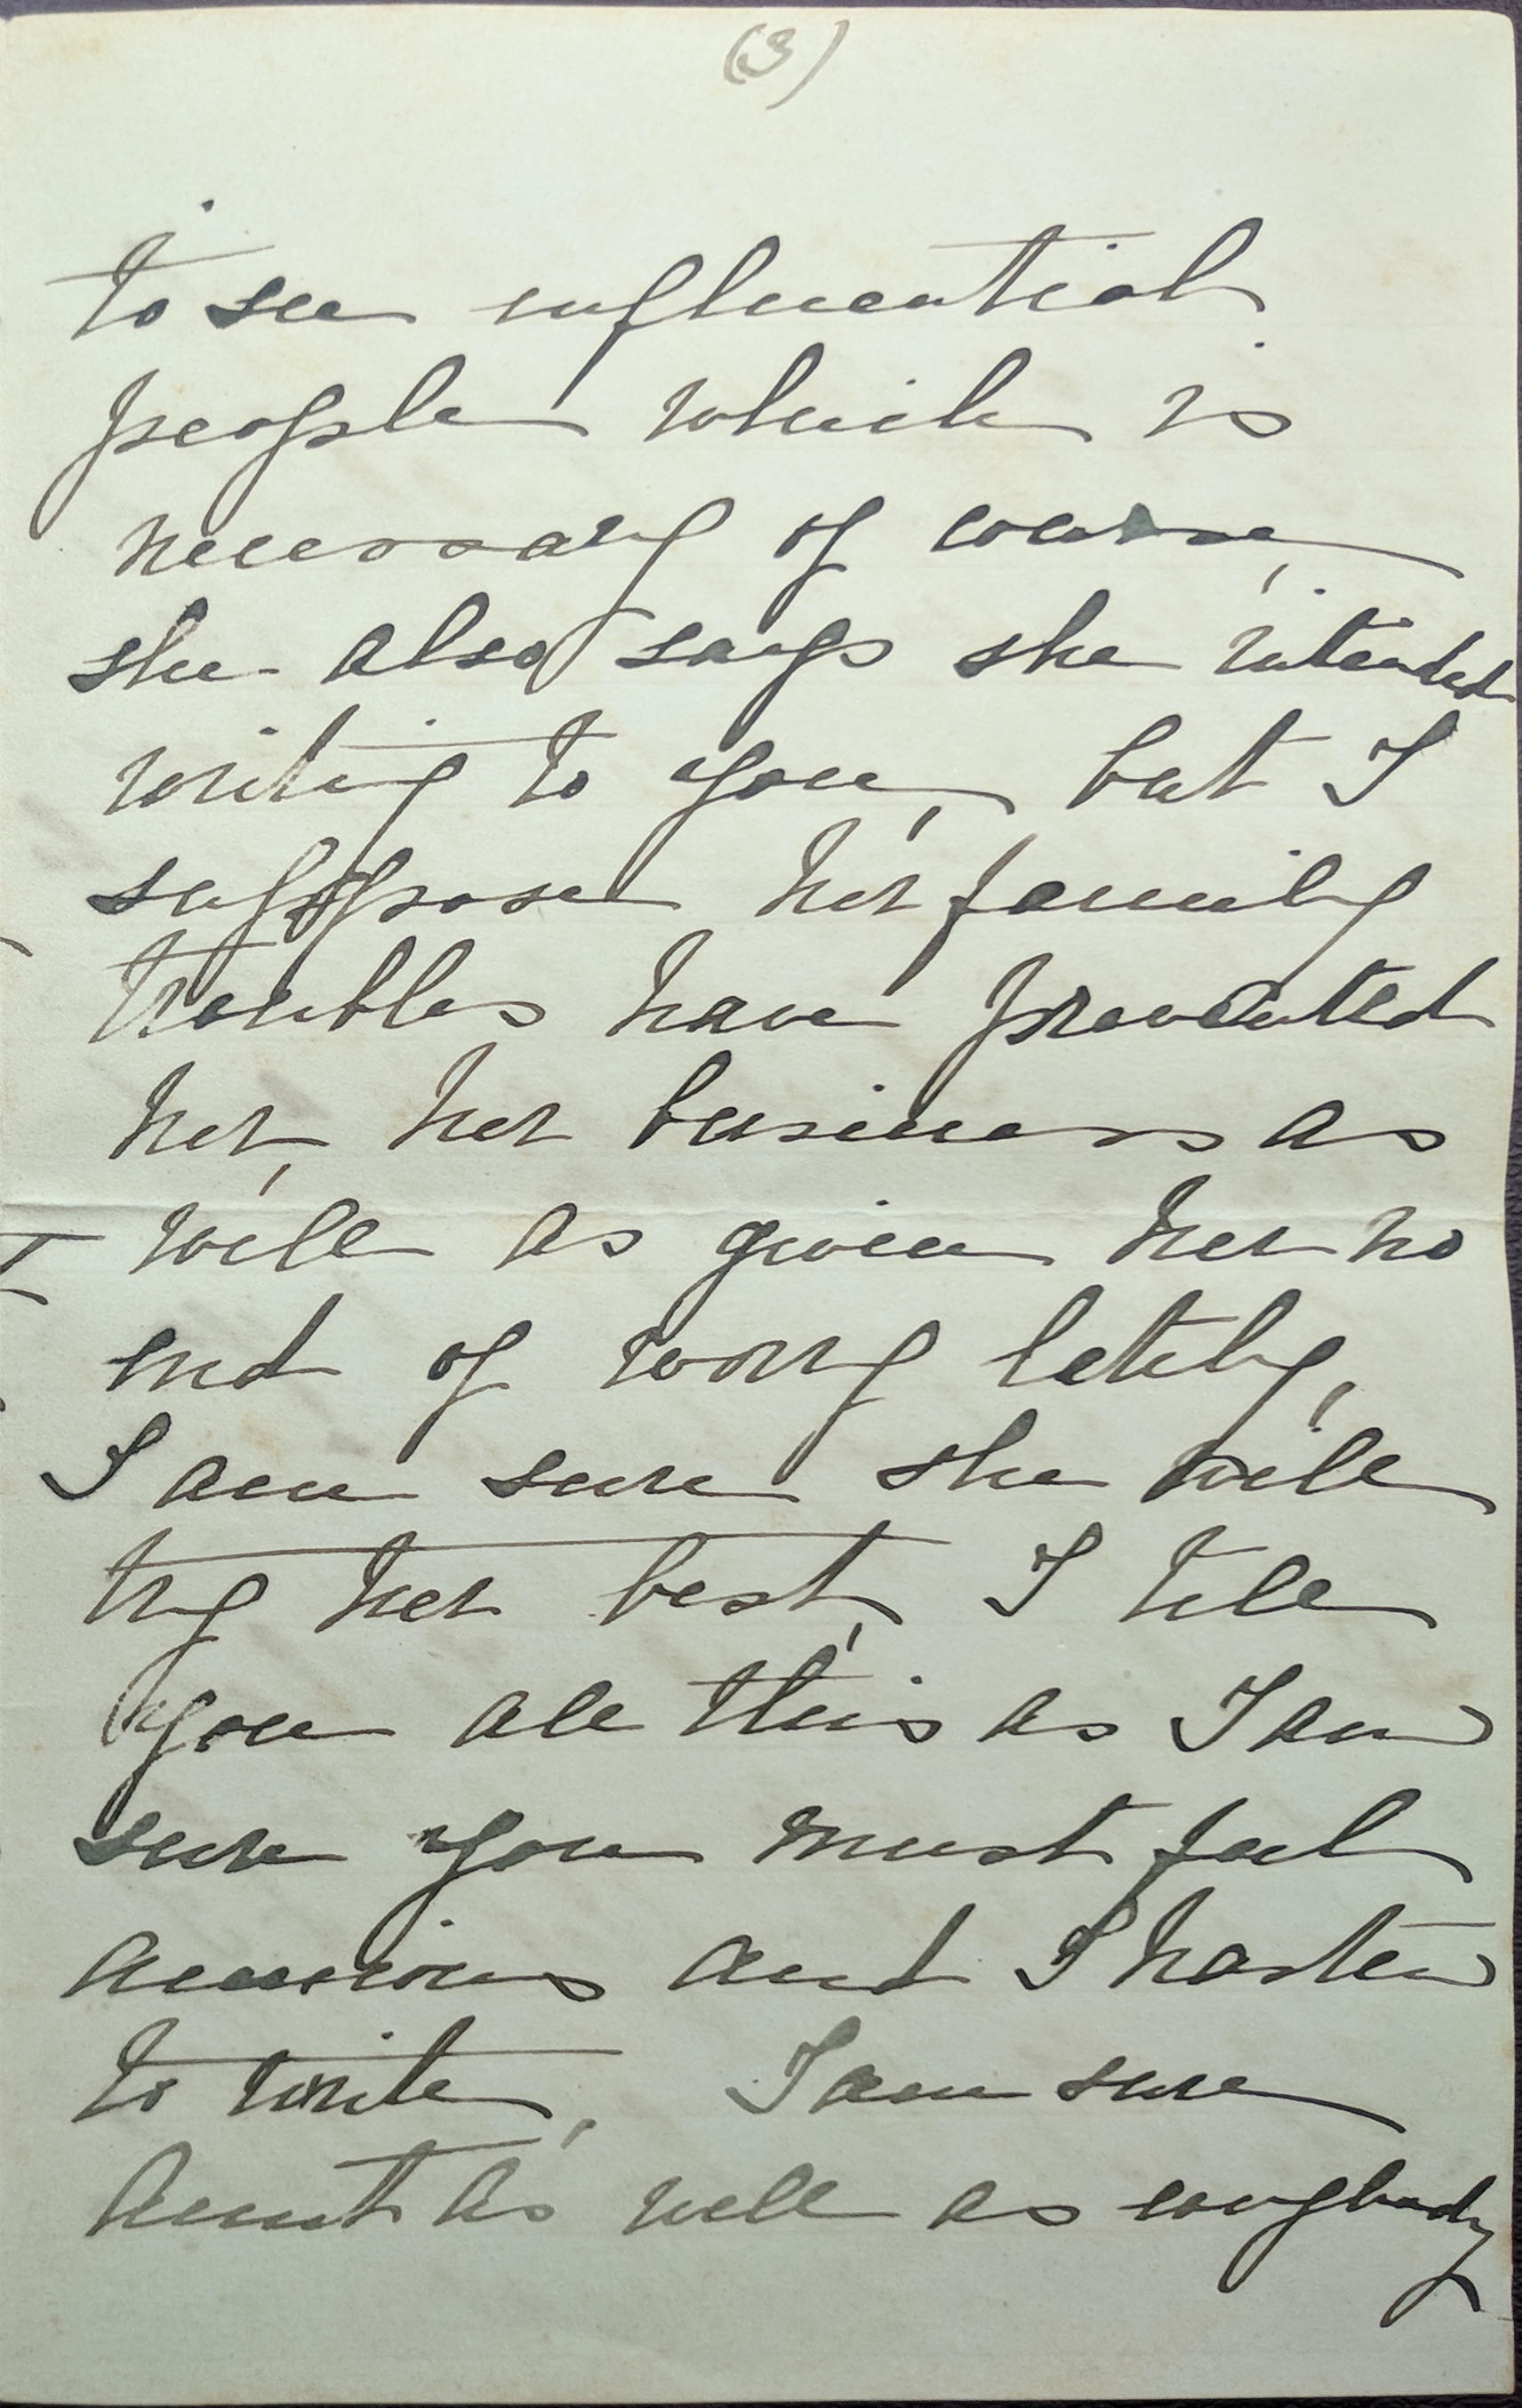 (3)
to see influential
people which is
necessary of course,
she also says she intended
writing to you, but I
suppose her family
troubles have prevented
her, her business as
well as given her no
end of worry lately,
I am sure she will
try her best, I tell
you all this as I am
sure you must feel
anxious and I hasten
to write, I am sure
Aunt as well as